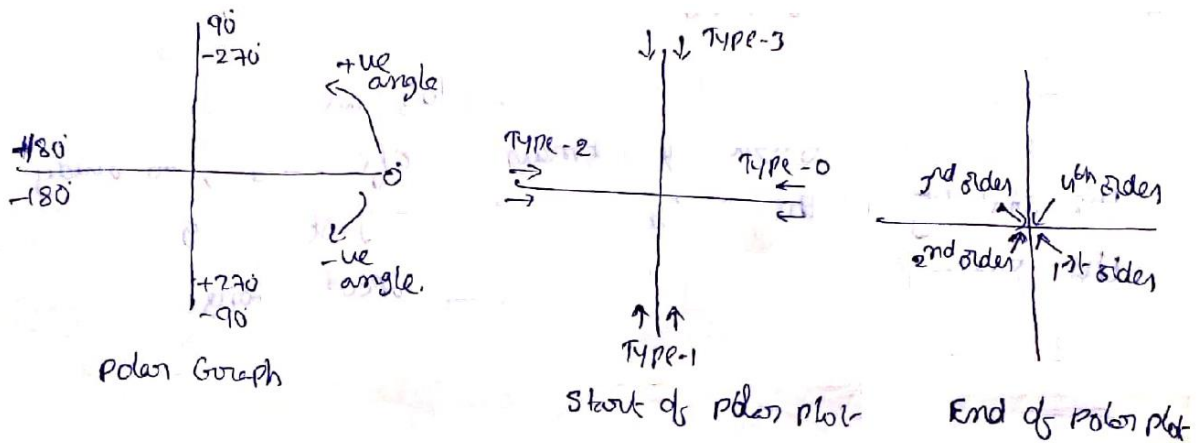 90°
-270°
+ve
angle
+180°
-180°
0°
-ve
angle.
+270°
-90°
Polar Graph
Type-3
Type-2
Type-0
Type-1
Start of polar plot
3rd order
4th order
2nd order
1st order
End of polar plot